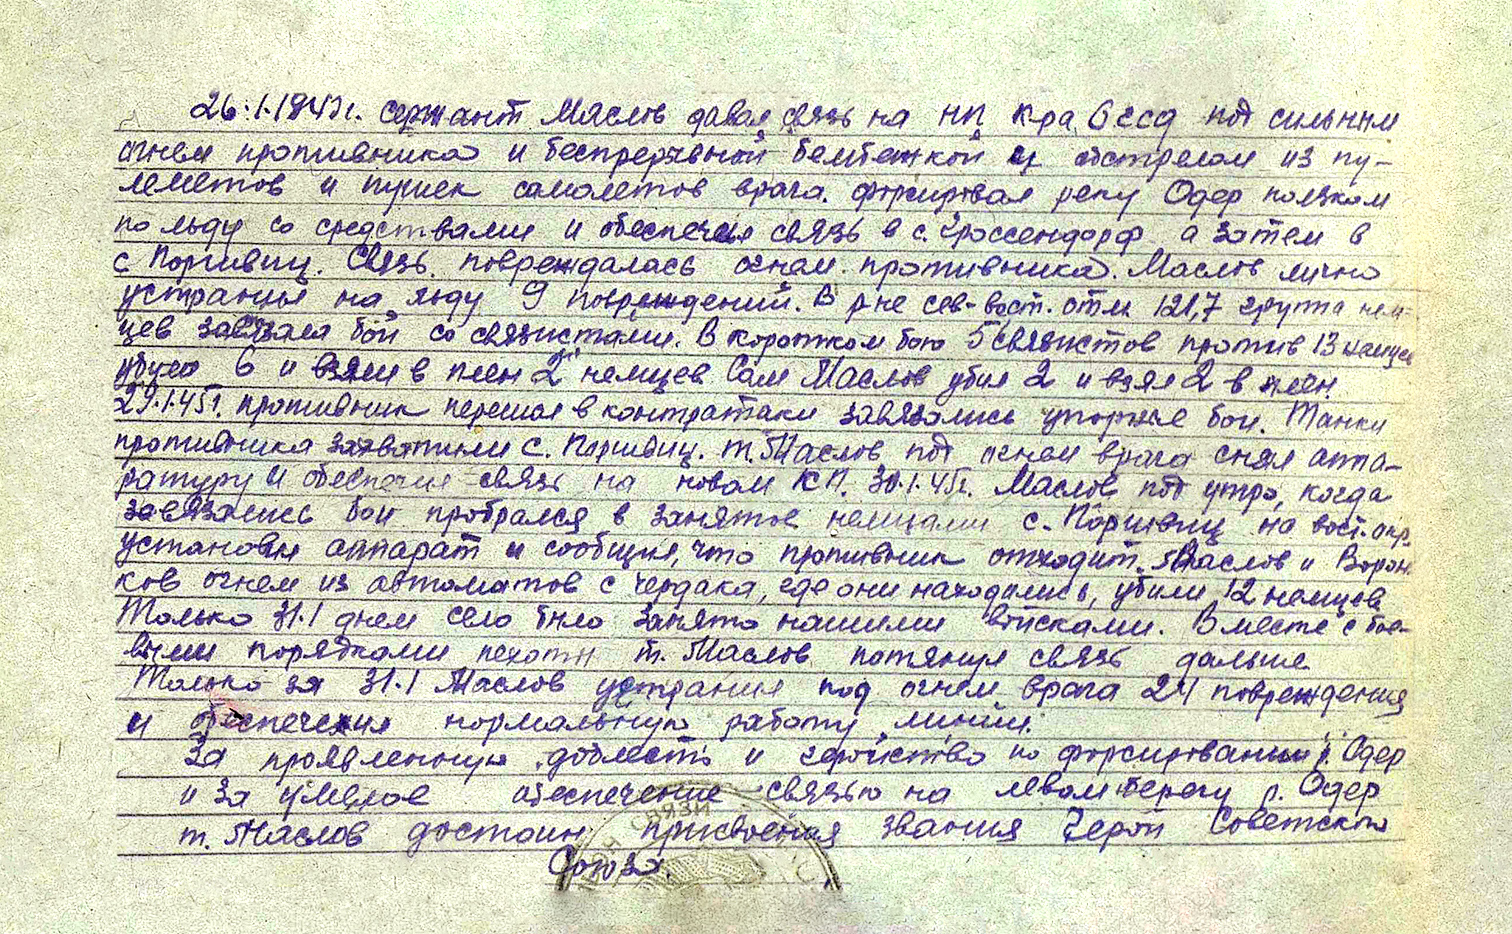 26.1.1945г. сержант Маслов давая связь на НП к-ра 6 ссд под сильным
огнем противника и беспрерывной бомбежкой и обстрелом из пу-
леметов и пушек самолетов врага. форсировал реку Одер ползком
по льду со средствами и обеспечил связь в с. Гроссендорф а затем в
с Поршвиц. Связь повреждалась огнем противника. Маслов лично
устранил на льду 9 повреждений. В р-не сев-вост. отм. 121,7 группа нем-
цев завязала бой со связистами. В коротком бою 5 связистов против 13 немцев
убили 6 и взяли в плен 2х немцев Сам Маслов убил 2 и взял 2 в плен.
29.1.45г. противник перешел в контратаки завязались упорные бои. Танки
противника захватили с. Поршвиц. т. Маслов под огнем врага снял аппа-
ратуру и обеспечил связь на новом КП. 30.1.45г. Маслов под утро, когда
завязались бои пробрался в занятое немцами с. Поршвиц на вост. окр.
установил аппарат и сообщил, что противник отходит. Маслов и Ворон-
ков огнем из автоматов с чердака, где они находились, убили 12 немцев
Только 31.1 днем село было занято нашими войсками. Вместе с бое-
выми порядками пехоты т. Маслов потянул связь дальше
Только за 31.1 Маслов устранил под огнем врага 24 повреждения
и обеспечил нормальную работу линии.
За проявленную доблесть и геройство по форсированию р. Одер
и за умелое обеспечение связью на левом берегу р. Одер
т. Маслов достоин присвоения звания Герой Советского
Союза.
СВЯЗИ